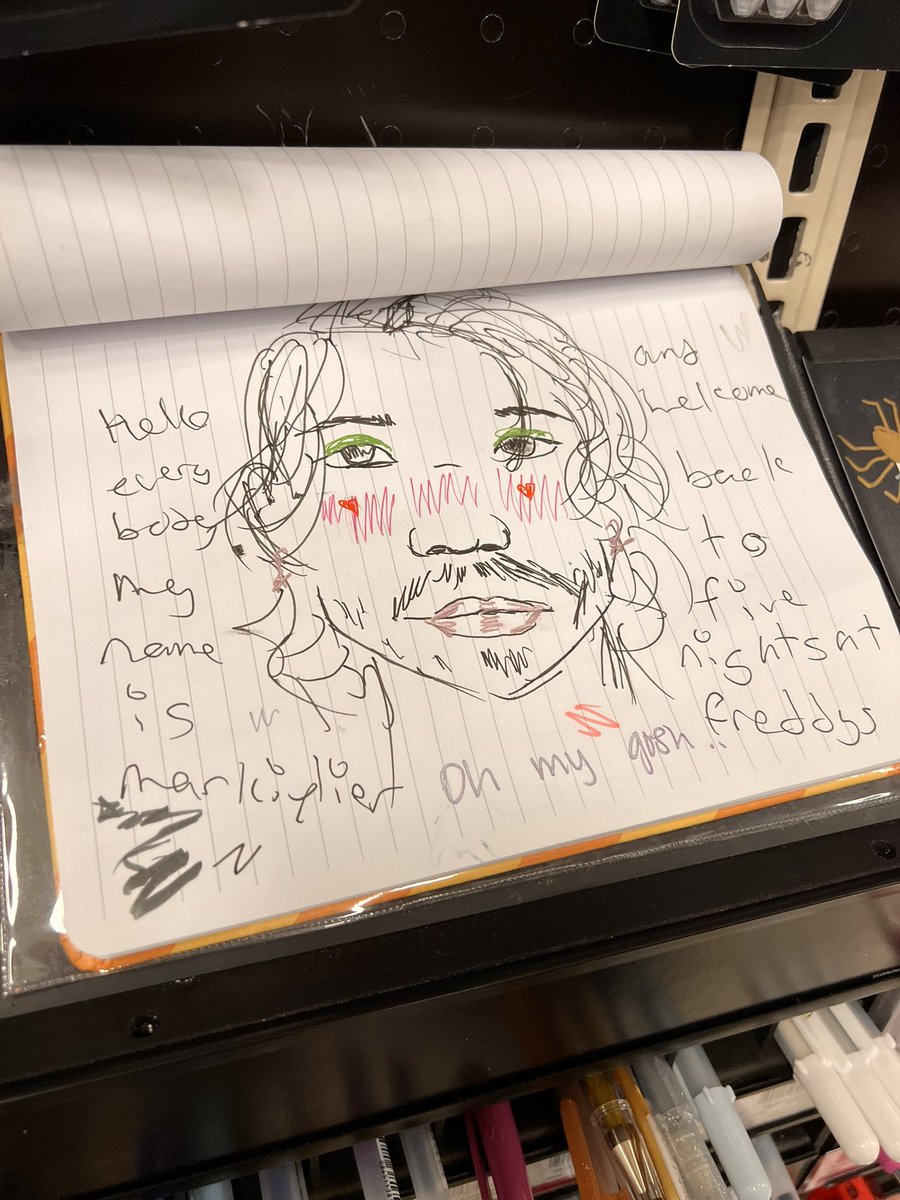 Hello
every
body
my
name
is
markiplier
and
welcome
back
to
five
nights at
freddys
Oh my gosh..